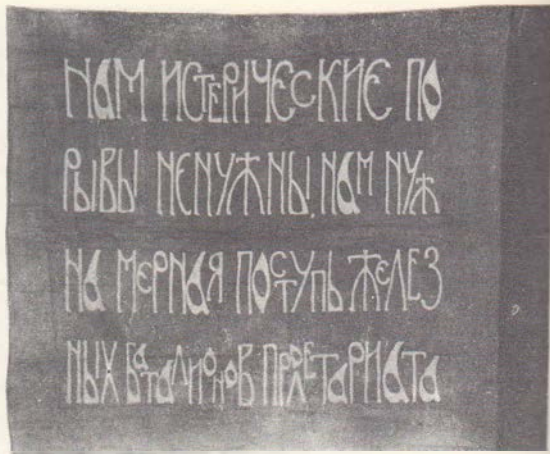 НАМ ИСТЕРИЧЕСКИЕ ПО
РЫВЫ НЕНУЖНЫ. НАМ НУЖ
НА МЕРНАЯ ПОСТУПЬ ЖЕЛЕЗ
НЫХ БАТАЛИОНОВ ПРОЛЕТАРИАТА